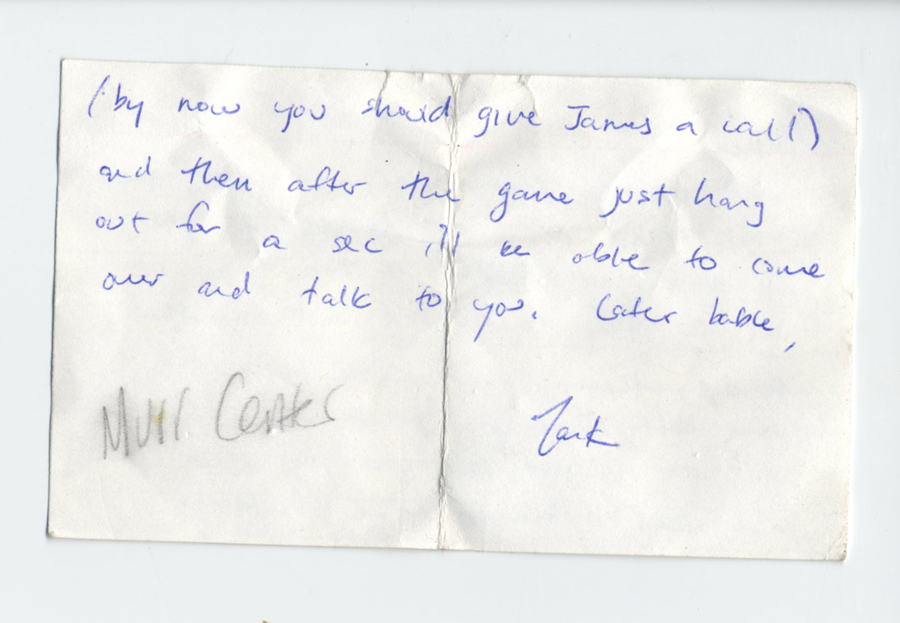 (by now you should give James a call)
and then after the game just hang
out for a sec i'll be able to come
over and talk to you. Later babe,
Center